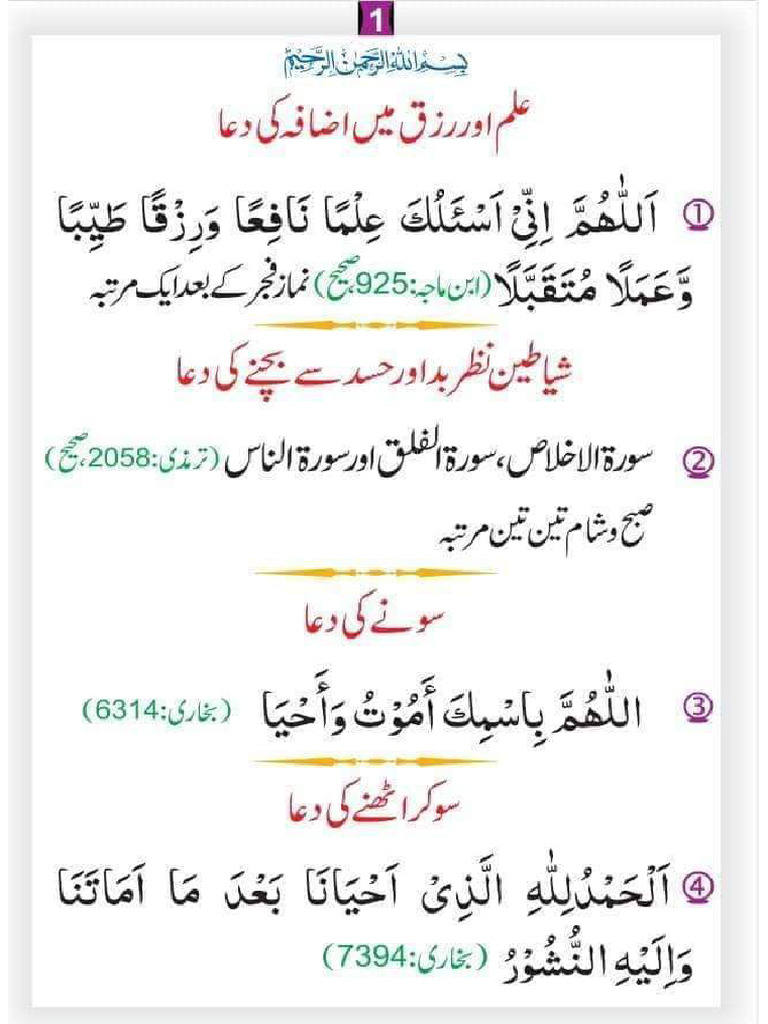 1
بِسْمِ اللهِ الرَّحْمٰنِ الرَّحِيْمِ
علم اور رزق میں اضافہ کی دعا
① اَللّٰهُمَّ اِنِّيْ اَسْئَلُكَ عِلْمًا نَافِعًا وَرِزْقًا طَيِّبًا
وَّعَمَلًا مُتَقَبَّلًا (ابن ماجہ:925،صحیح) نماز فجر کے بعد ایک مرتبہ
شیاطین نظر بد اور حسد سے بچنے کی دعا
② سورۃ الاخلاص، سورۃ الفلق اور سورۃ الناس (ترمذی:2058،صحیح)
صبح و شام تین تین مرتبہ
سونے کی دعا
③ اللّٰهُمَّ بِاسْمِكَ أَمُوْتُ وَأَحْيَا (بخاری:6314)
سو کر اٹھنے کی دعا
④ اَلْحَمْدُلِلّٰهِ الَّذِىْ اَحْيَانَا بَعْدَ مَا اَمَاتَنَا
وَاِلَيْهِ النُّشُوْرُ (بخاری:7394)